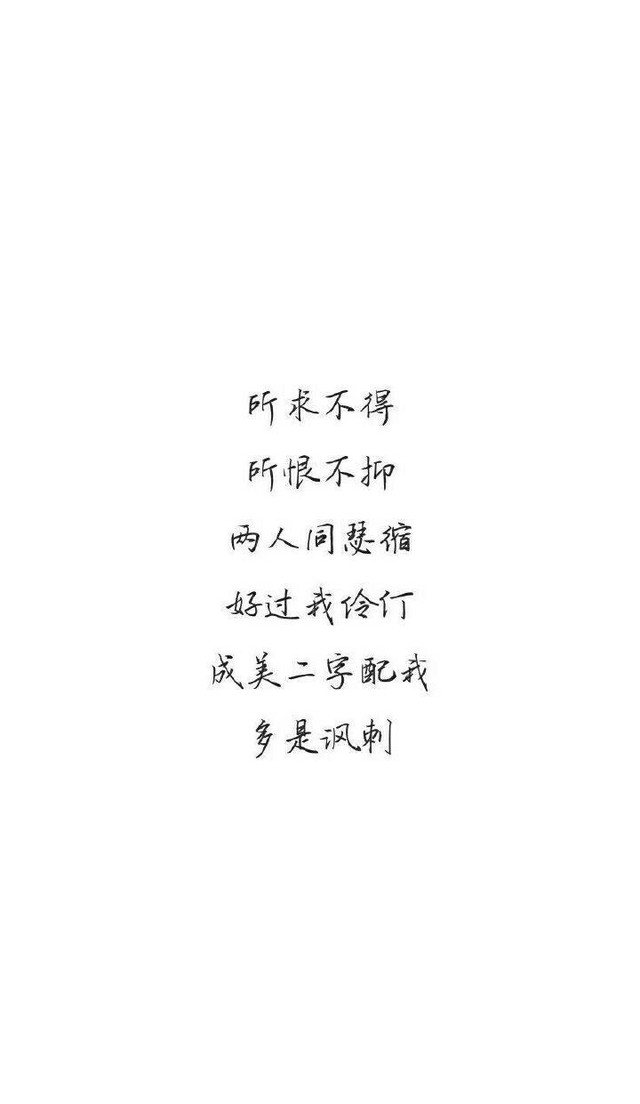 所求不得
所恨不抑
两人同瑟缩
好过我伶仃
成美二字配我
多是讽刺